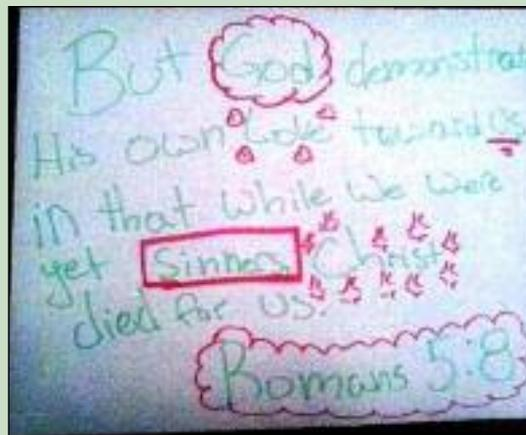 But God demonstrates
His own Love toward us
in that while we were
yet Sinners Christ
died for us.
Romans 5:8